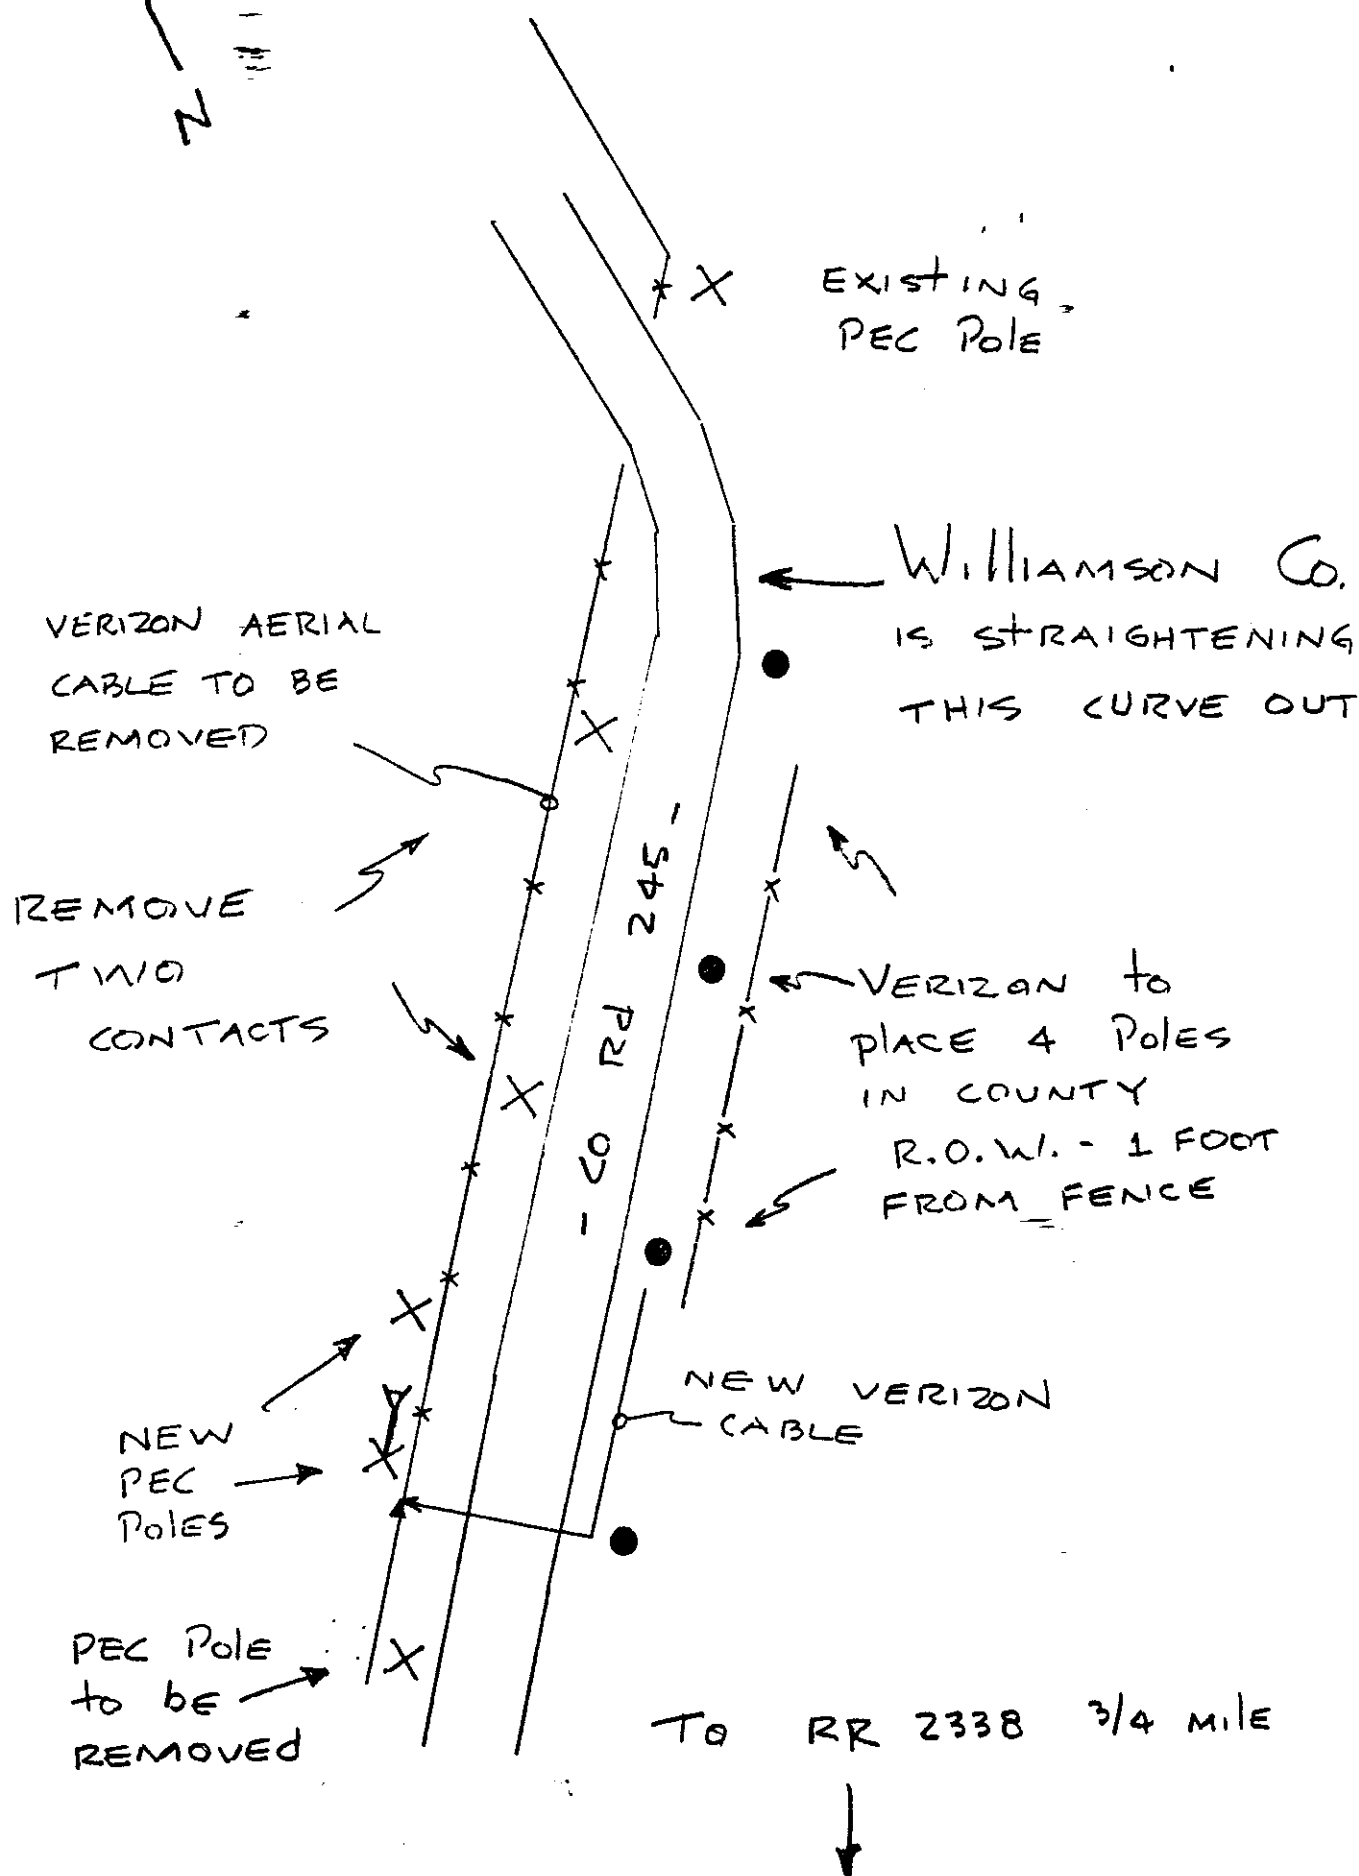 N
EXISTING
PEC POLE
WILLIAMSON CO.
IS STRAIGHTENING
THIS CURVE OUT
VERIZON AERIAL
CABLE TO BE
REMOVED
REMOVE
TWO
CONTACTS
- CO Rd 245 -
VERIZON to
PLACE 4 POLES
IN COUNTY
R.O.W. - 1 FOOT
FROM FENCE
NEW VERIZON
CABLE
NEW
PEC
POLES
PEC POLE
to bE
REMOVEd
TO RR 2338 3/4 MILE